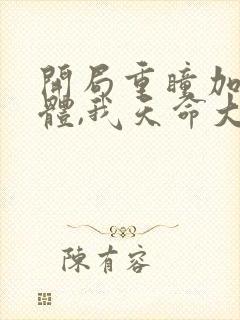 開局重瞳加
體,我天命大
陳有容